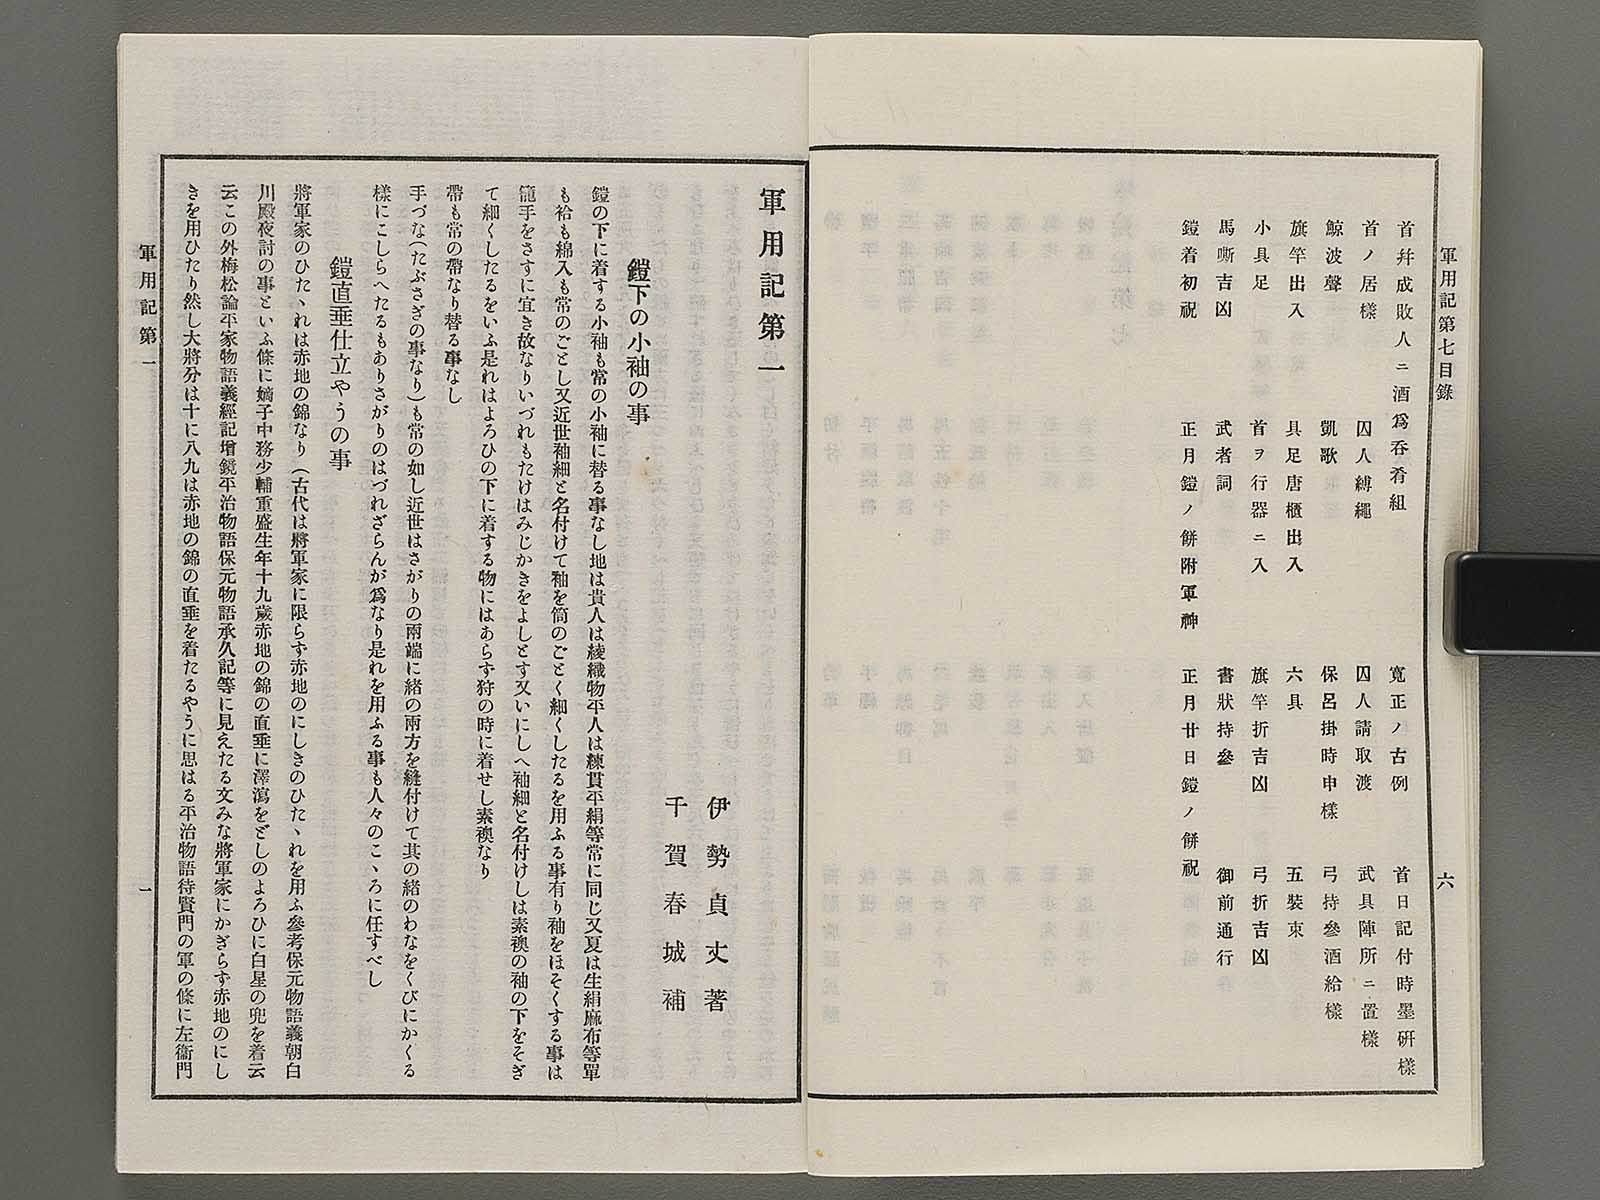 軍用記第七目錄
六
首幷成敗人ニ酒爲呑肴組
寬正ノ古例
首日記付時墨硏樣
首ノ居樣
囚人縛繩
囚人請取渡
武具陣所ニ置樣
鯨波聲
凱歌
保呂掛時申樣
弓持參酒給樣
旗竿出入
具足唐櫃出入
六具
五裝束
小具足
首ヲ行器ニ入
旗竿折吉凶
弓折吉凶
馬嘶吉凶
武者詞
書狀持參
御前通行
鎧着初祝
正月鎧ノ餅附軍神
正月廿日鎧ノ餅祝
軍用記第一
伊勢貞丈著
千賀春城補
鎧下の小袖の事
鎧の下に着する小袖も常の小袖に替る事なし地は貴人は綾織物平人は練貫平絹等常に同じ又夏は生絹麻布等單
も袷も綿入も常のごとし又近世袖細と名付けて袖を筒のごとく細くしたるを用ふる事有り袖をほそくする事は
籠手をさすに宜き故なりいづれもたけはみじかきをよしとす又いにしへ袖細と名付けしは素襖の袖の下をそぎ
て細くしたるをいふ是れはよろひの下に着する物にはあらず狩の時に着せし素襖なり
帶も常の帶なり替る事なし
手づな(たぶさぎの事なり)も常の如し近世はさがりの兩端に緒の兩方を縫付けて其の緒のわなをくびにかくる
樣にこしらへたるもありさがりのはづれざらんが爲なり是れを用ふる事も人々のこゝろに任すべし
鎧直垂仕立やうの事
將軍家のひたゝれは赤地の錦なり(古代は將軍家に限らず赤地のにしきのひたゝれを用ふ參考保元物語義朝白
川殿夜討の事といふ條に嫡子中務少輔重盛生年十九歲赤地の錦の直垂に澤瀉をどしのよろひに白星の兜を着云
云この外梅松論平家物語義經記增鏡平治物語保元物語承久記等に見えたる文みな將軍家にかぎらず赤地のにし
きを用ひたり然し大將分は十に八九は赤地の錦の直垂を着たるやうに思はる平治物語待賢門の軍の條に左衞門
軍用記第一
一